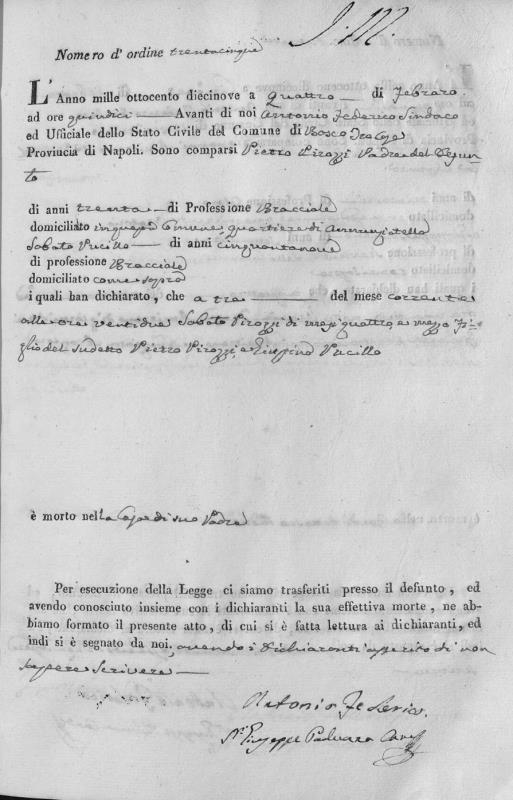 Nomero d' ordine trentacinque
L'Anno mille ottocento diecinove a quattro di Febraro.
ad ore quindici Avanti di noi Antonio Federico Sindaco
ed Uffiziale dello Stato Civile del Comune di Bosco Tre Case
Proviucia di Napoli. Sono comparsi Pietro Pirozzi Padre del Defun-
to
di anni trenta di Professione Bracciale
domiciliato in questo Comune quartiere di Annunziatella
Sabato Vucillo di anni cinquantanove
di professione Bracciale
domiciliato come sopra
i quali han dichiarato, che a tre del mese corrente
alle ore ventidue Sabato Pirozzi di mesi quattro e mezzo Fi-
glio del sudetto Pietro Pirozzi, e Vucillo
è morto nella Casa di suo Padre
Per esecuzione della Legge ci siamo trasferiti presso il defunto, ed
avendo conosciuto insieme con i dichiaranti la sua effettiva morte, ne ab-
biamo formato il presente atto, di cui si è fatta lettura ai dichiaranti, ed
indi si è segnato da noi, avendo i Dichiaranti asserito di non
sapere scrivere
Antonio Federico.
Giuseppe Paduano